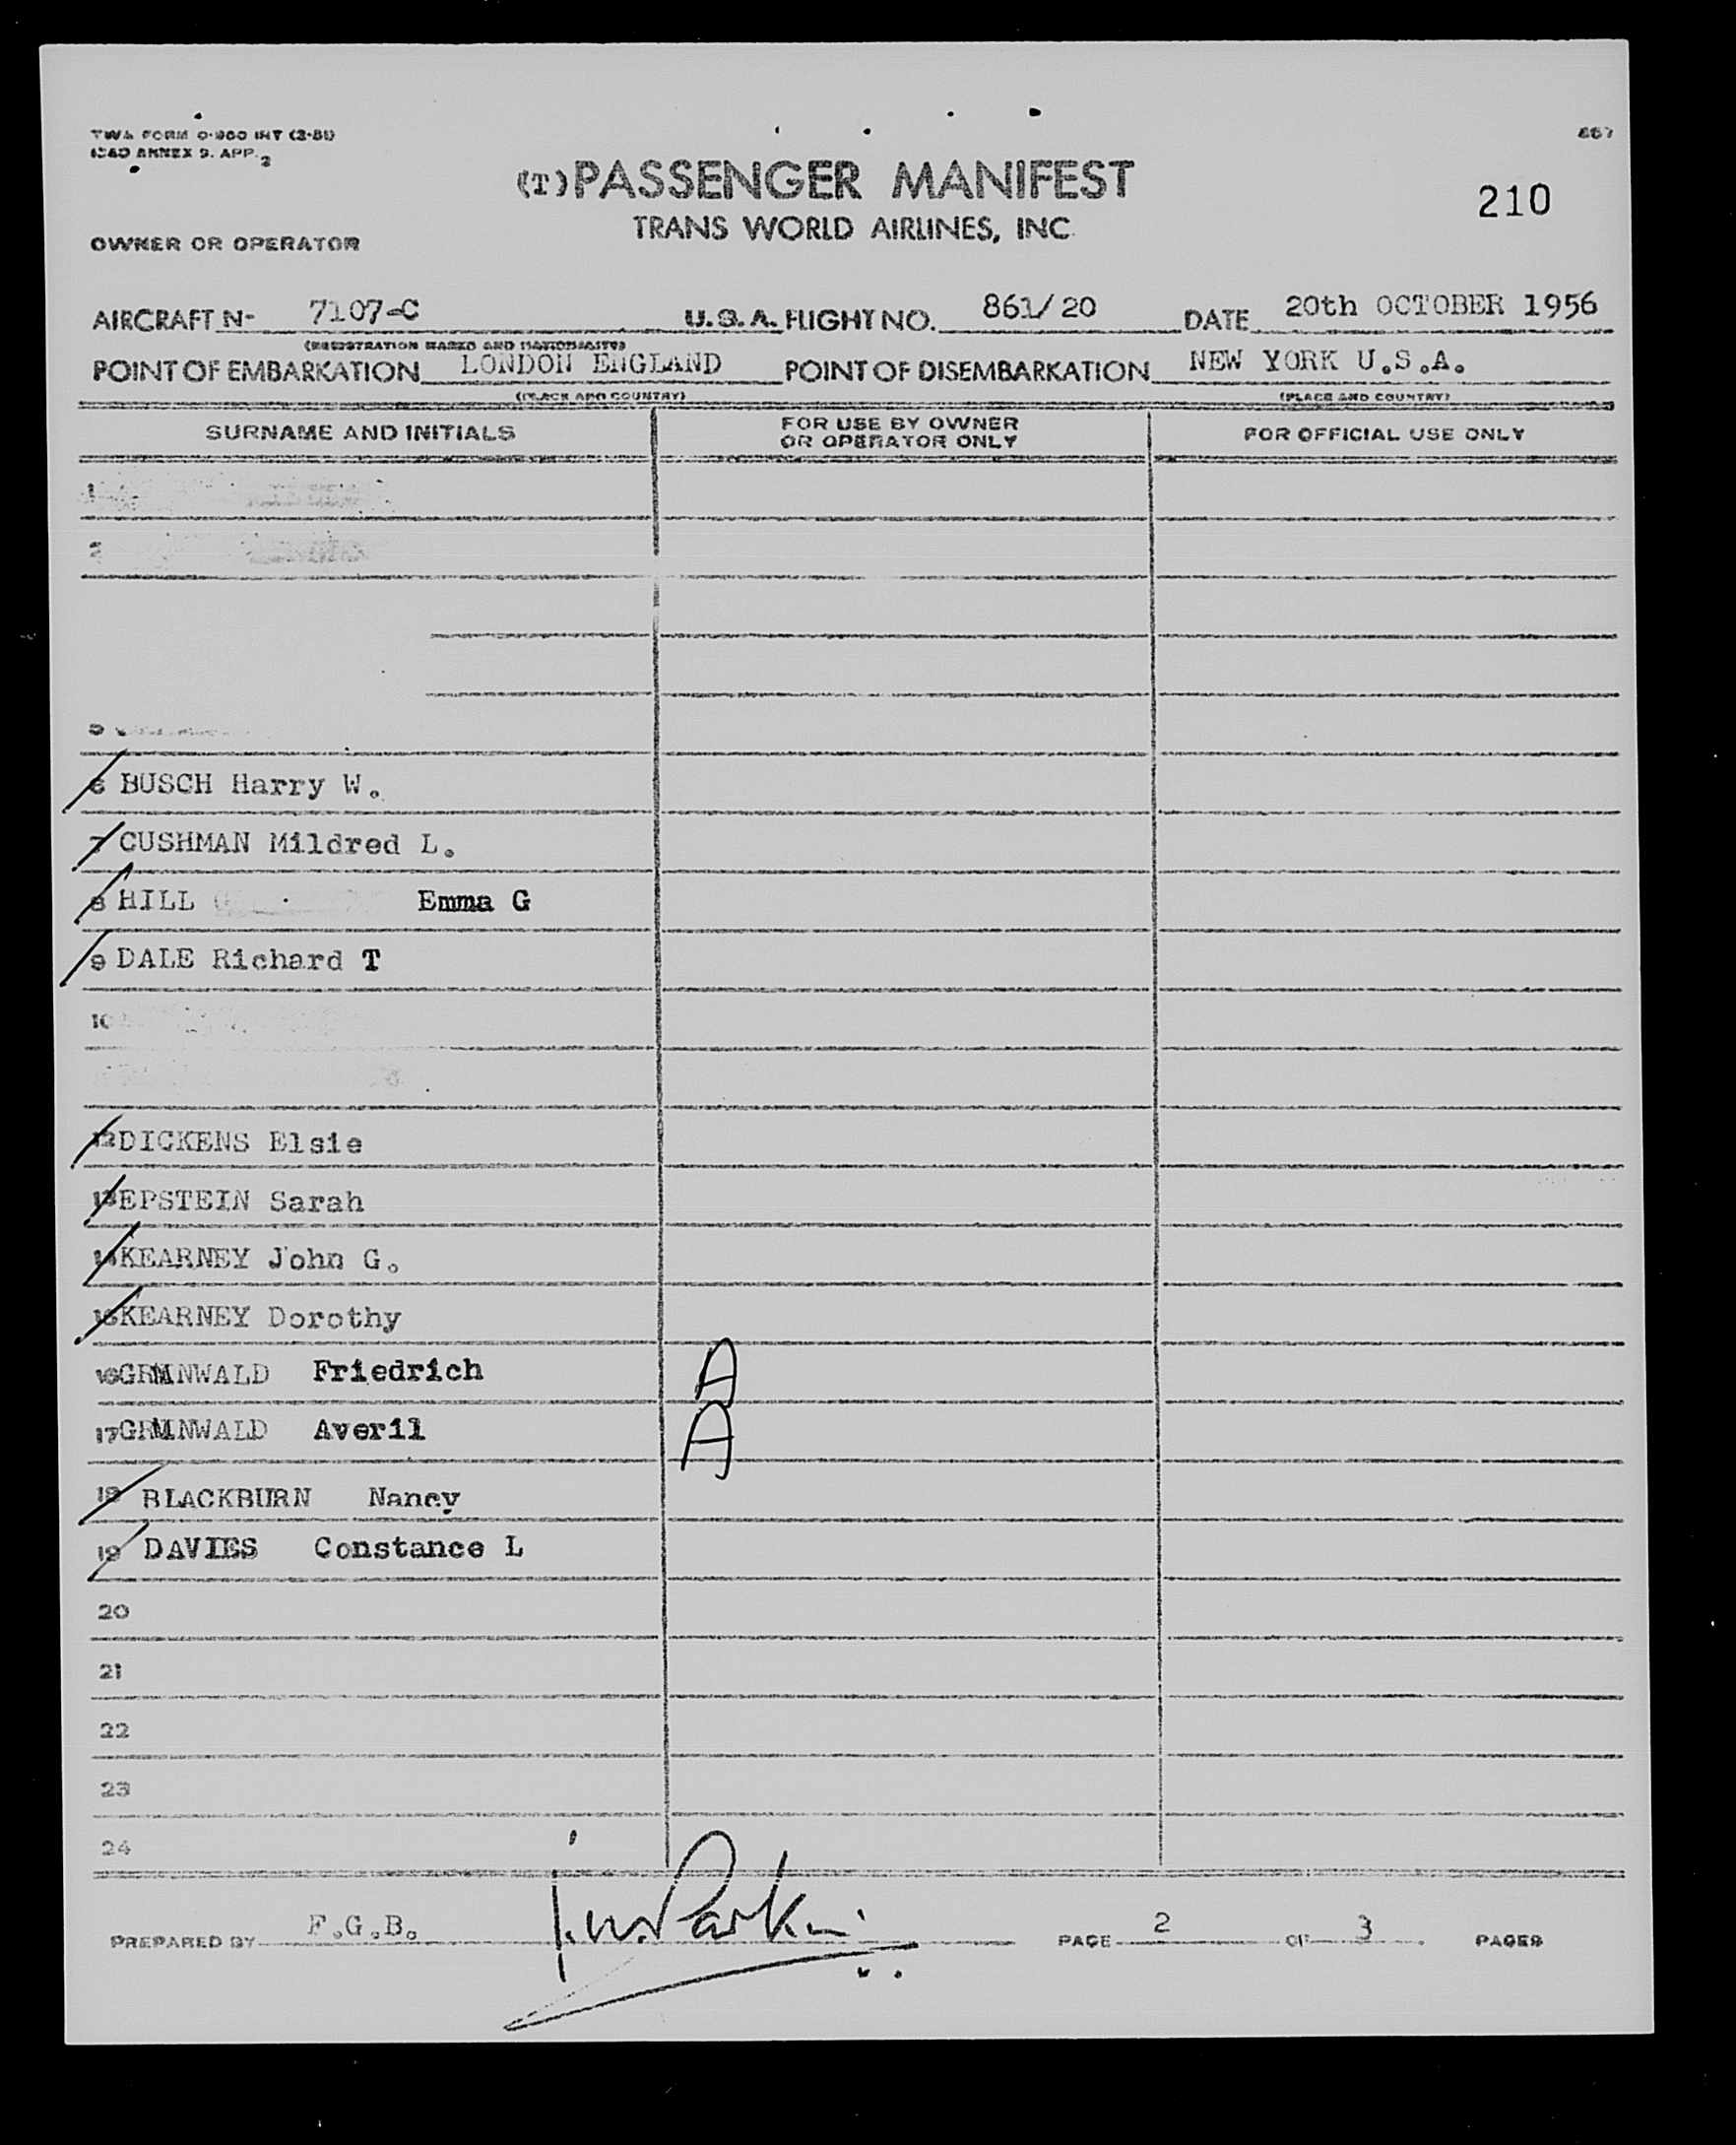 TWA FORM O-900 INT (2-51)
ICAO ANNEX 9. APP. 2
867
(T) PASSENGER MANIFEST
210
TRANS WORLD AIRLINES, INC.
OWNER OR OPERATOR
AIRCRAFT N- 7107-C U.S.A. FLIGHT NO. 861/20 DATE 20th OCTOBER 1956
(REGISTRATION MARKS AND NATIONALITY)
POINT OF EMBARKATION LONDON ENGLAND POINT OF DISEMBARKATION NEW YORK U.S.A.
(PLACE AND COUNTRY) (PLACE AND COUNTRY)
SURNAME AND INITIALS FOR USE BY OWNER OR OPERATOR ONLY FOR OFFICIAL USE ONLY
1
2
5
6 BUSCH Harry W.
7 CUSHMAN Mildred L.
8 HILL Emma G
9 DALE Richard T
10
12 DICKENS Elsie
13 EPSTEIN Sarah
14 KEARNEY John G.
15 KEARNEY Dorothy
16 Friedrich A
17 Averil A
18 BLACKBURN Nancy
19 DAVIES Constance L
20
21
22
23
24
PREPARED BY F.G.B. PAGE 2 OF 3 PAGES